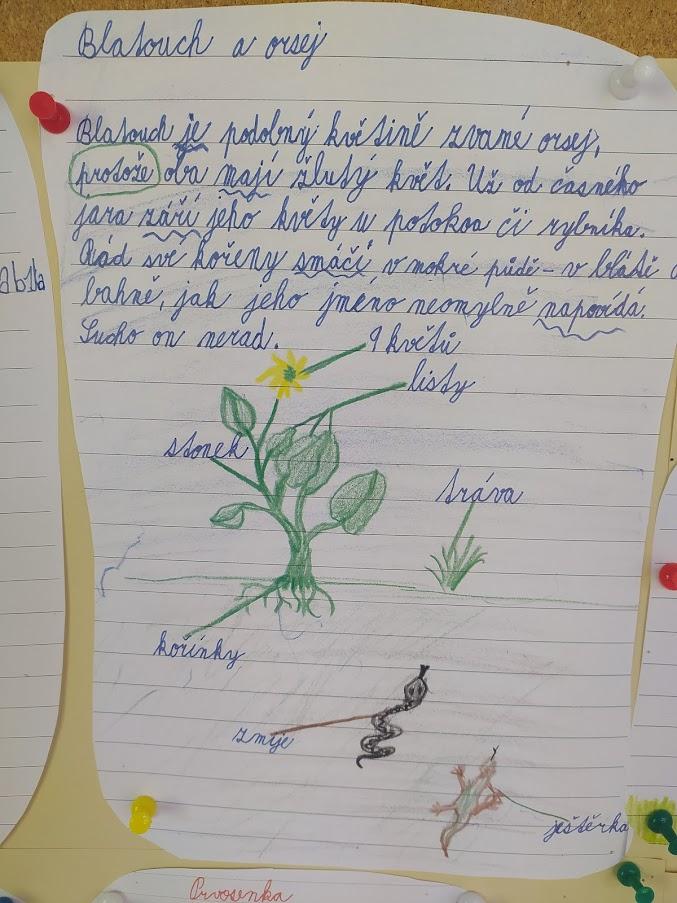 Blatouch a orsej
Blatouch je podobný květině zvané orsej,
protože oba mají žlutý květ. Už od časného
jara září jeho květy u potoka či rybníka.
Rád své kořeny smáčí v mokré půdě - v blátě a
bahně, jak jeho jméno neomylně napovídá.
Sucho on nerad.
květů
listy
stonek
tráva
kořínky
zmije
ještěrka
Prvosenka